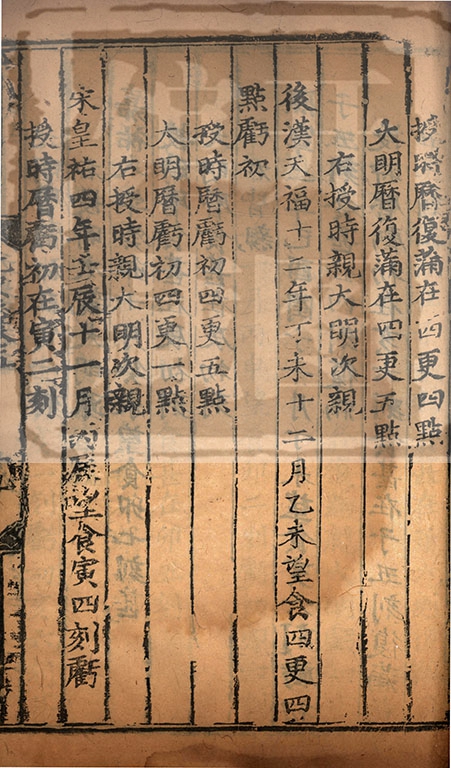 授時曆復滿在四更四點
大明曆復滿在四更五點
右授時親大明次親
後漢天福十二年丁未十二月乙未望食四更四
點虧初
授時曆虧初四更五點
大明曆虧初四更一點
右授時親大明次親
宋皇祐四年壬辰十一月丙辰望食寅四刻虧
授時曆虧初在寅二刻